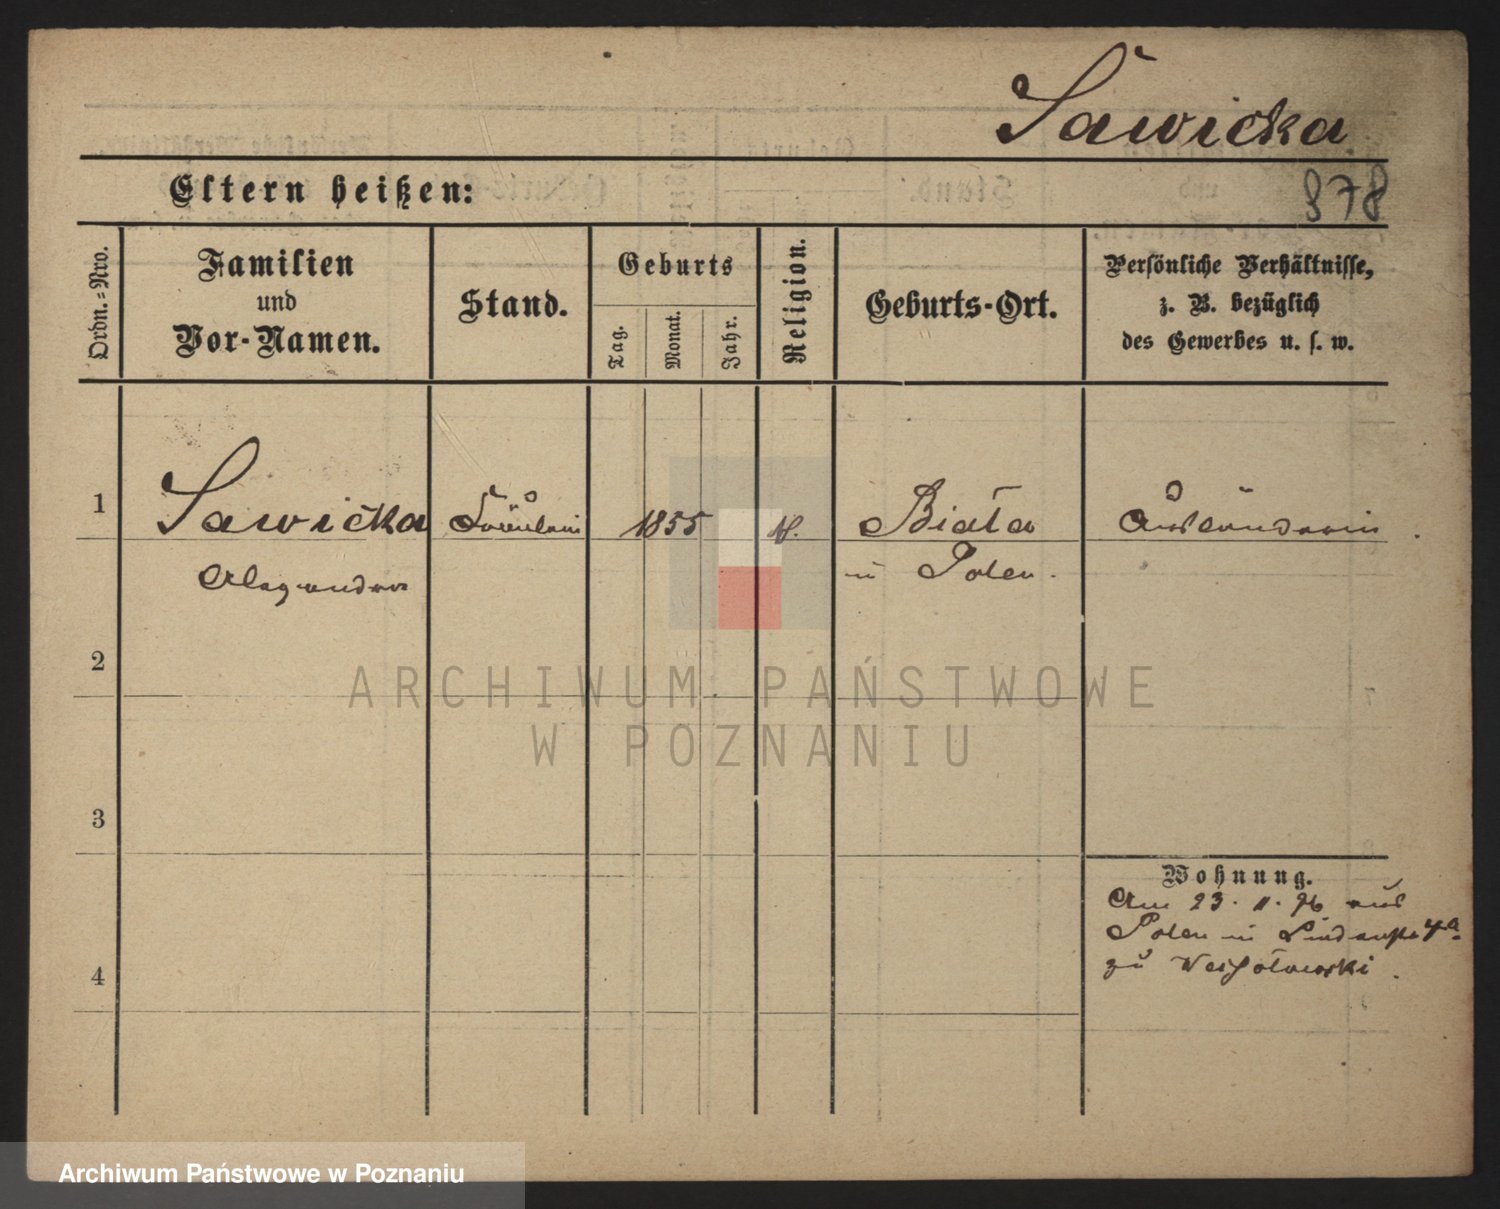 Sawicka
Eltern heißen:
378
Ordn.=Nro.
Familien
und
Vor-Namen.
Stand.
Geburts
Tag.
Monat.
Jahr.
Religion.
Geburts-Ort.
Persönliche Verhältnisse,
z. B. bezüglich
des Gewerbes u. s. w.
1
Sawicka Fräulein 1855 Biała Ausländerin
Alexandra in Polen.
2
ARCHIWUM PAŃSTWOWE
W POZNANIU
3
Wohnung.
Am 23. 11. 96 aus
Polen in Lindenstr
zu
4
Archiwum Państwowe w Poznaniu